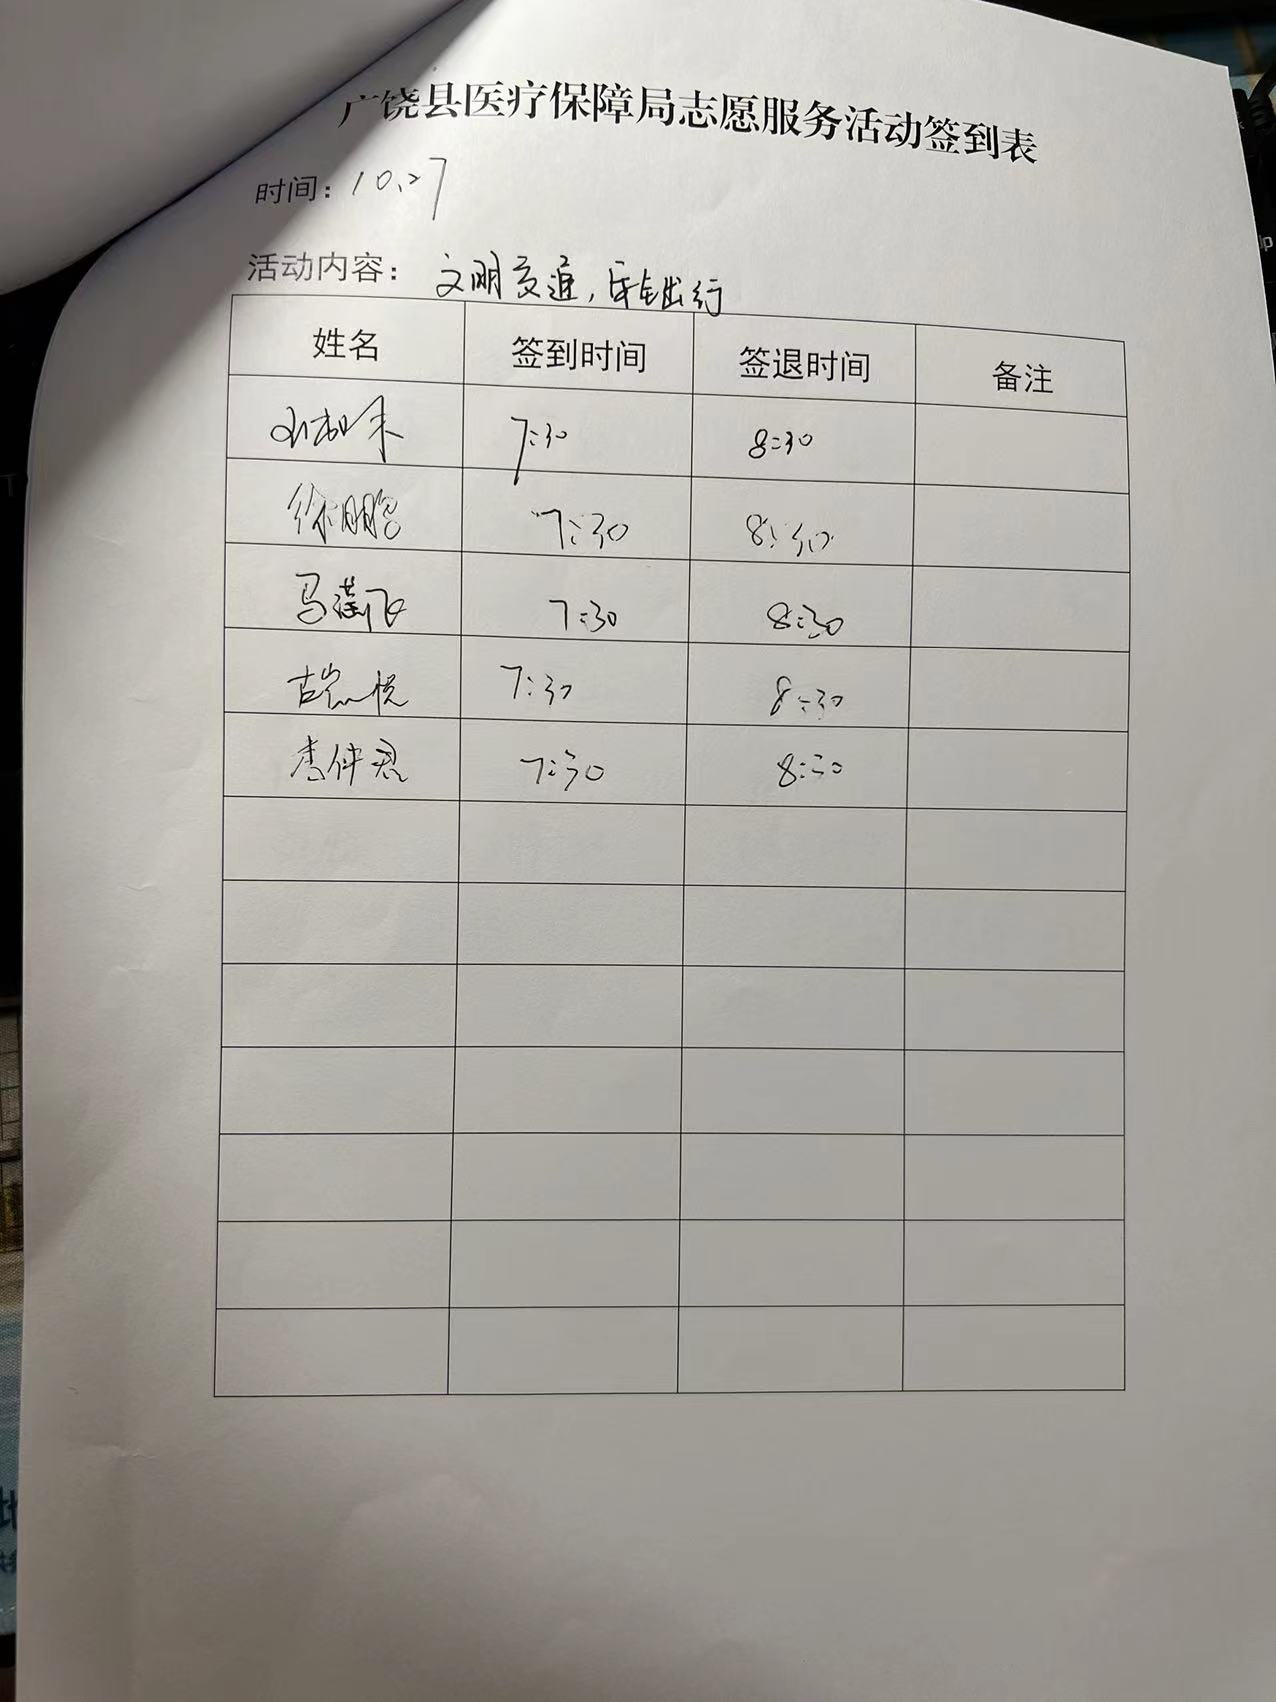 广饶县医疗保障局志愿服务活动签到表
时间：10.27
活动内容：文明交通，安全出行
姓名 签到时间 签退时间 备注
7:30 8:30
徐鹏 7:30 8:30
马 飞 7:30 8:30
古 悦 7:30 8:30
李仲君 7:30 8:30